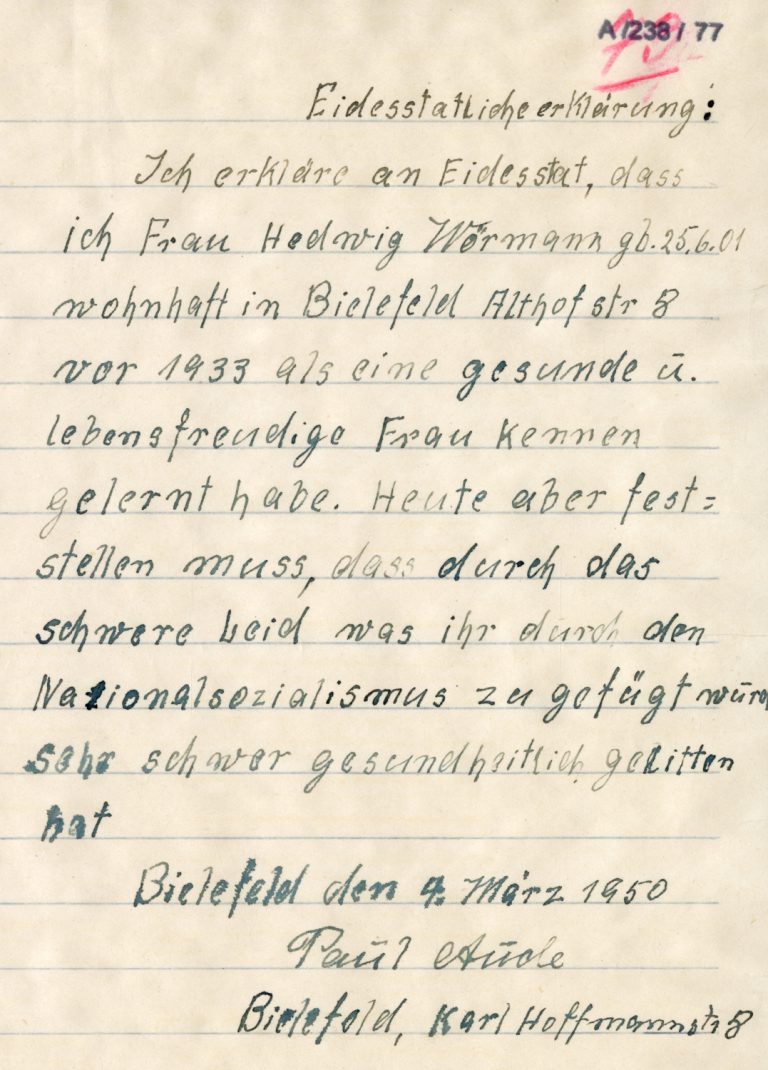 A/238/77
Eidesstatliche erklärung:
Ich erkläre an Eidesstat, dass
ich Frau Hedwig Wörmann gb. 25.6.01
wohnhaft in Bielefeld Althofstr 8
vor 1933 als eine gesunde ū.
lebensfreudige Frau kennen
gelernt habe. Heute aber fest=
stellen muss, dass durch das
schwere Leid was ihr durch den
Nationalsozialismus zu gefügt
sehr schwer gesundheitlich gelitten
hat
Bielefeld den 4. März 1950
Paūl
Bielefeld, Karl Hoffmannstr 8